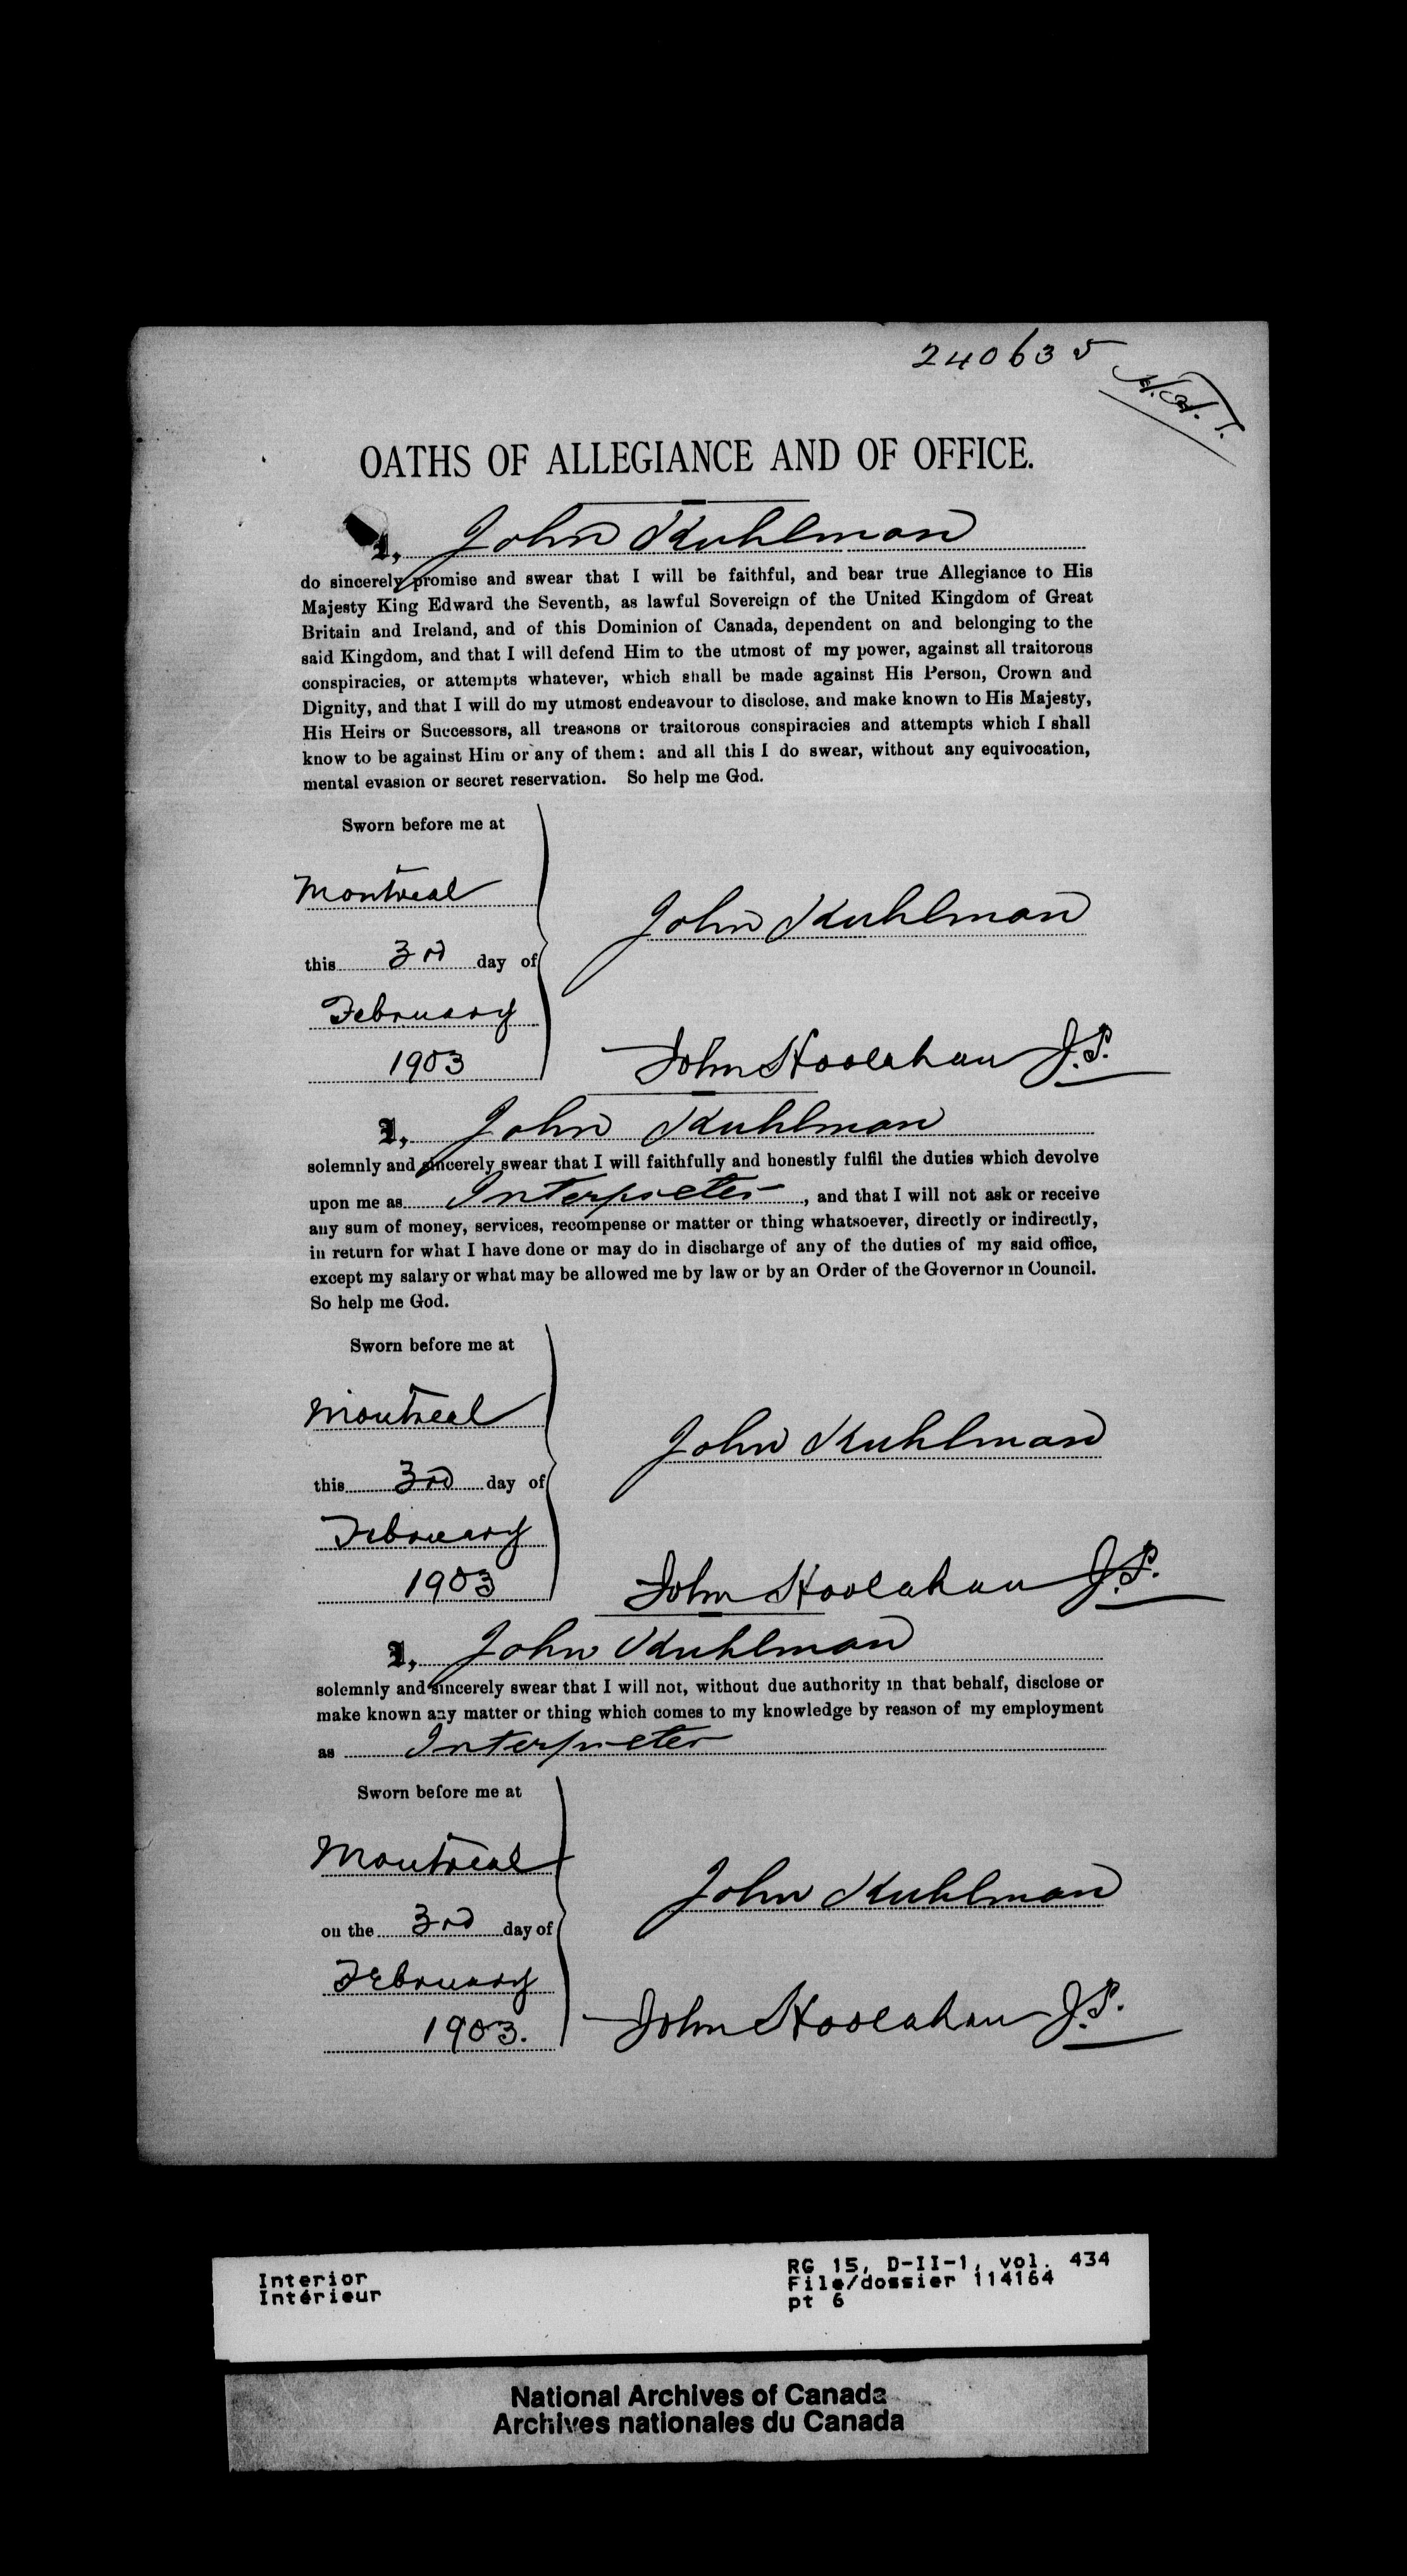 240635
OATHS OF ALLEGIANCE AND OF OFFICE.
I, John Kuhlman
do sincerely promise and swear that I will be faithful, and bear true Allegiance to His
Majesty King Edward the Seventh, as lawful Sovereign of the United Kingdom of Great
Britain and Ireland, and of this Dominion of Canada, dependent on and belonging to the
said Kingdom, and that I will defend Him to the utmost of my power, against all traitorous
conspiracies, or attempts whatever, which shall be made against His Person, Crown and
Dignity, and that I will do my utmost endeavour to disclose, and make known to His Majesty,
His Heirs or Successors, all treasons or traitorous conspiracies and attempts which I shall
know to be against Him or any of them: and all this I do swear, without any equivocation,
mental evasion or secret reservation. So help me God.
Sworn before me at
Montreal
John Kuhlman
this 3rd day of
February
1903
John Hoolahan J.P.
I, John Kuhlman
solemnly and sincerely swear that I will faithfully and honestly fulfil the duties which devolve
upon me as Interpreter, and that I will not ask or receive
any sum of money, services, recompense or matter or thing whatsoever, directly or indirectly,
in return for what I have done or may do in discharge of any of the duties of my said office,
except my salary or what may be allowed me by law or by an Order of the Governor in Council.
So help me God.
Sworn before me at
Montreal
John Kuhlman
this 3rd day of
February
1903
John Hoolahan J.P.
I, John Kuhlman
solemnly and sincerely swear that I will not, without due authority in that behalf, disclose or
make known any matter or thing which comes to my knowledge by reason of my employment
as Interpreter
Sworn before me at
Montreal
John Kuhlman
on the 3rd day of
February
1903.
John Hoolahan J.P.
Interior
Intérieur
RG 15, D-II-1, vol. 434
File/dossier 114164
pt 6
National Archives of Canada
Archives nationales du Canada